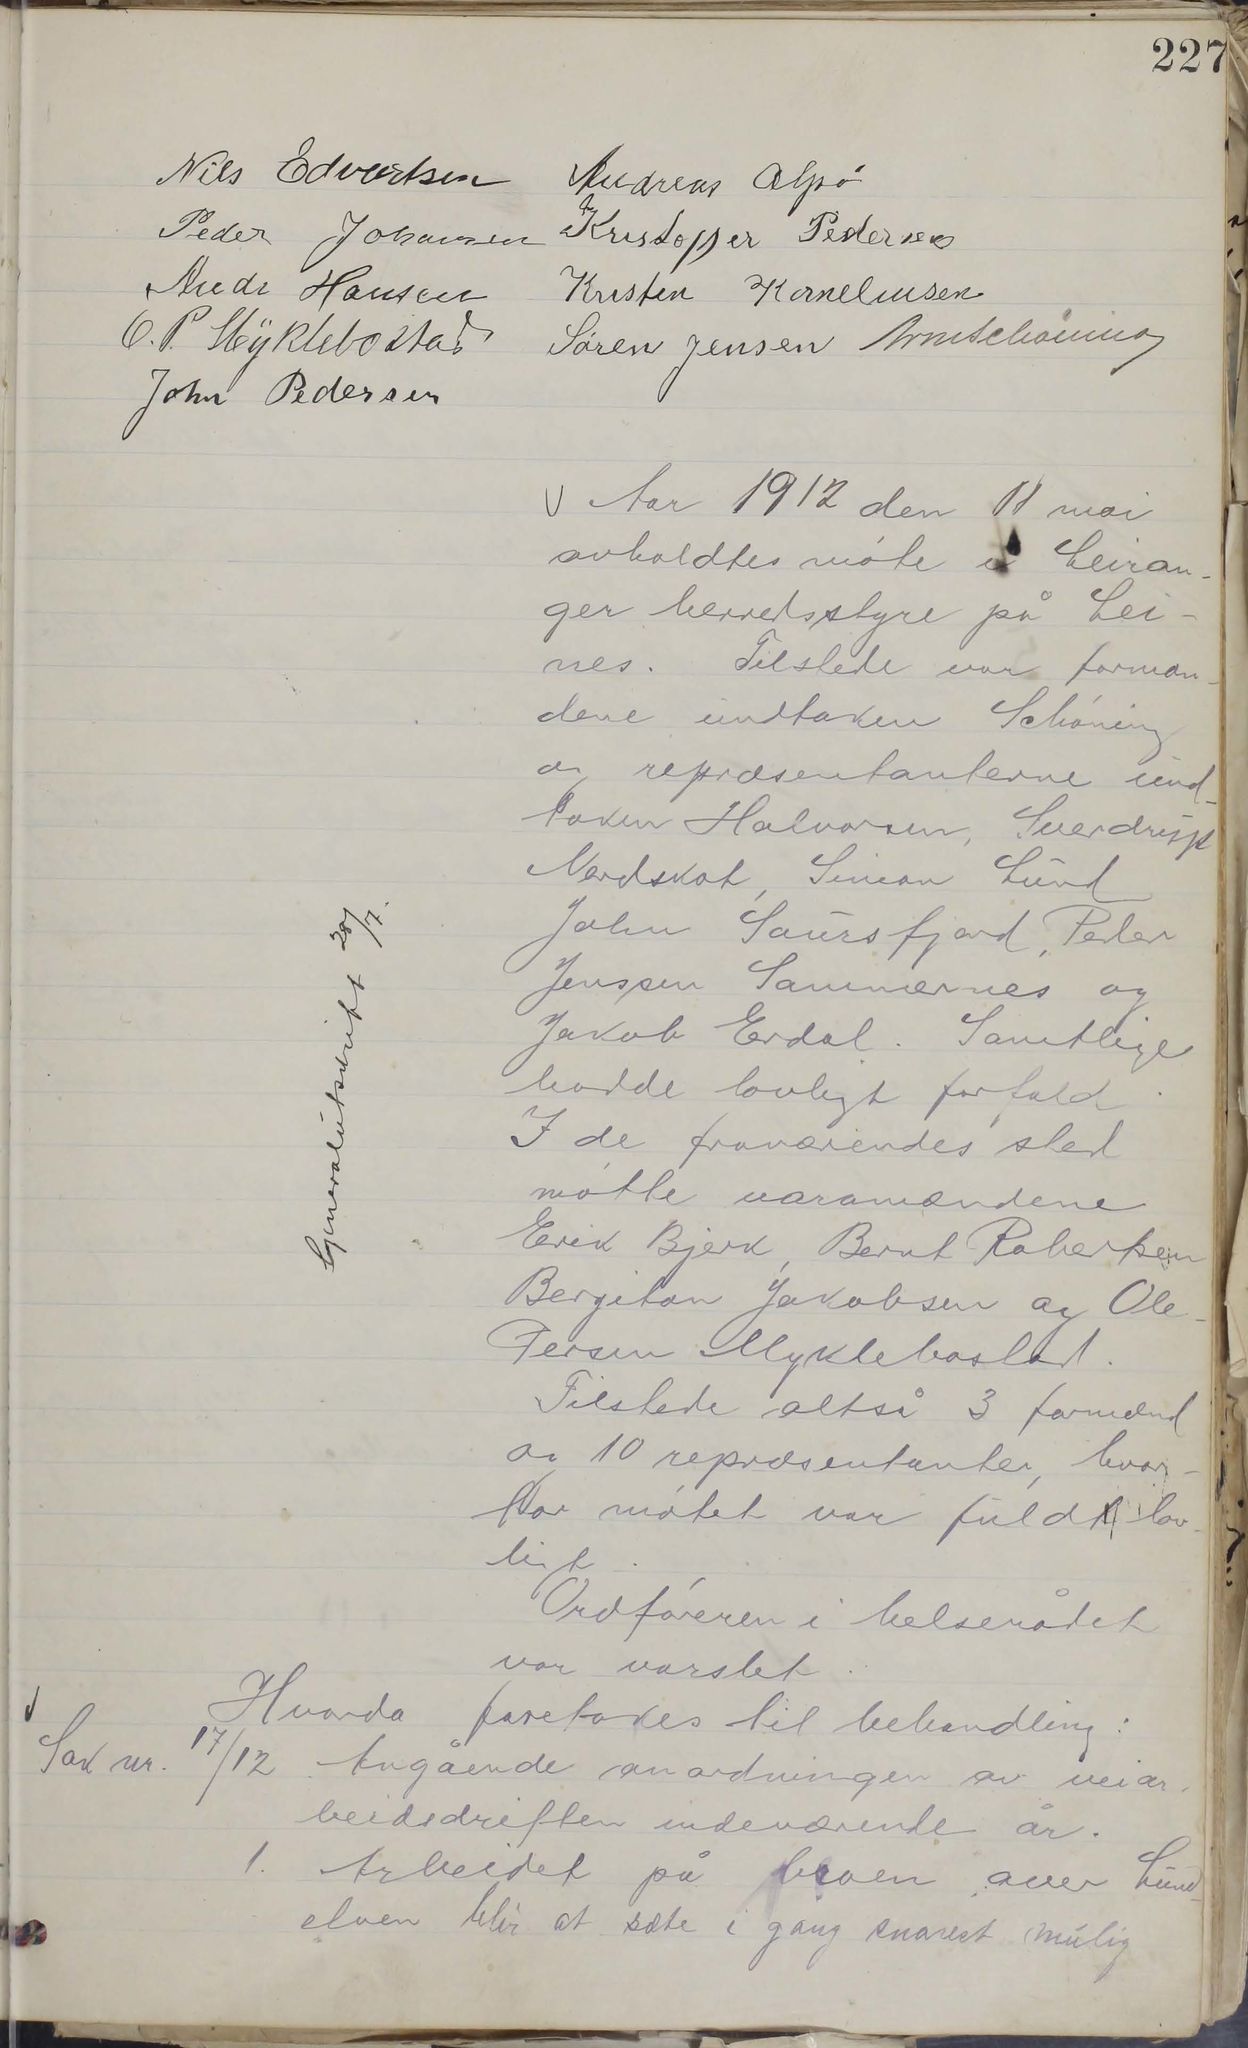 227
Nils Edvartsen Andreas Alpö
Peder Johansen Kristoffer Pedersen
Andr Hansen Kristen Korneliusen
O. P. Myklebostad Sören Jensen Arnt Schöning
John Pedersen
Aar 1912 den 11 mai
avholdtes möte i Leiran-
ger herredsstyre på Lei-
nes. Tilstede var forman-
dene undtaken Schöning
og repræsentanterne und-
taken Halvorsen, Sverdrup
Nordskot, Simon Lund
John Saursfjord, Peder
Jenssen Sammernes og
Jakob Erdal. Samtlige
hadde lovligt forfald.
I de fraværendes sted
mötte varamændene
Erik Bjerk, Bernt Robertsen
Bergiton Jakobsen og Ole
Persen Myklebostad.
Tilstede altså 3 formænd
og 10 repræsentanter, hvor-
for mötet var fuldt lov-
ligt.
Ordföreren i helserådet
var varslet.
Generalutskrift 28/7.
Hvorda foretakes til behandling:
Sak nr. 17/12 Angående anordningen av veiar-
beidsdriften indeværende år.
1. Arbeidet på broen over Lund-
elven blir at sætte i gang snarest mulig